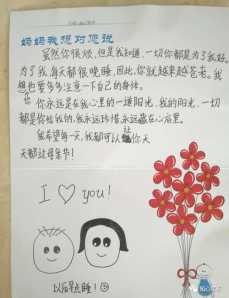 妈妈我想对您说
虽然你很烦,但是我知道,一切你都是为了我好。
为了我,每天都很晚睡,因此,你就越来越苍老。我
想你要多多注意一下自己的身体。
你永远是在我心里的一道阳光,我的阳光,一切
都是你给我的,我永远珍惜,永远藏在心后里。
我希望每一天,我都可以让你天
天都过母亲节!
I you!
以后早点睡!